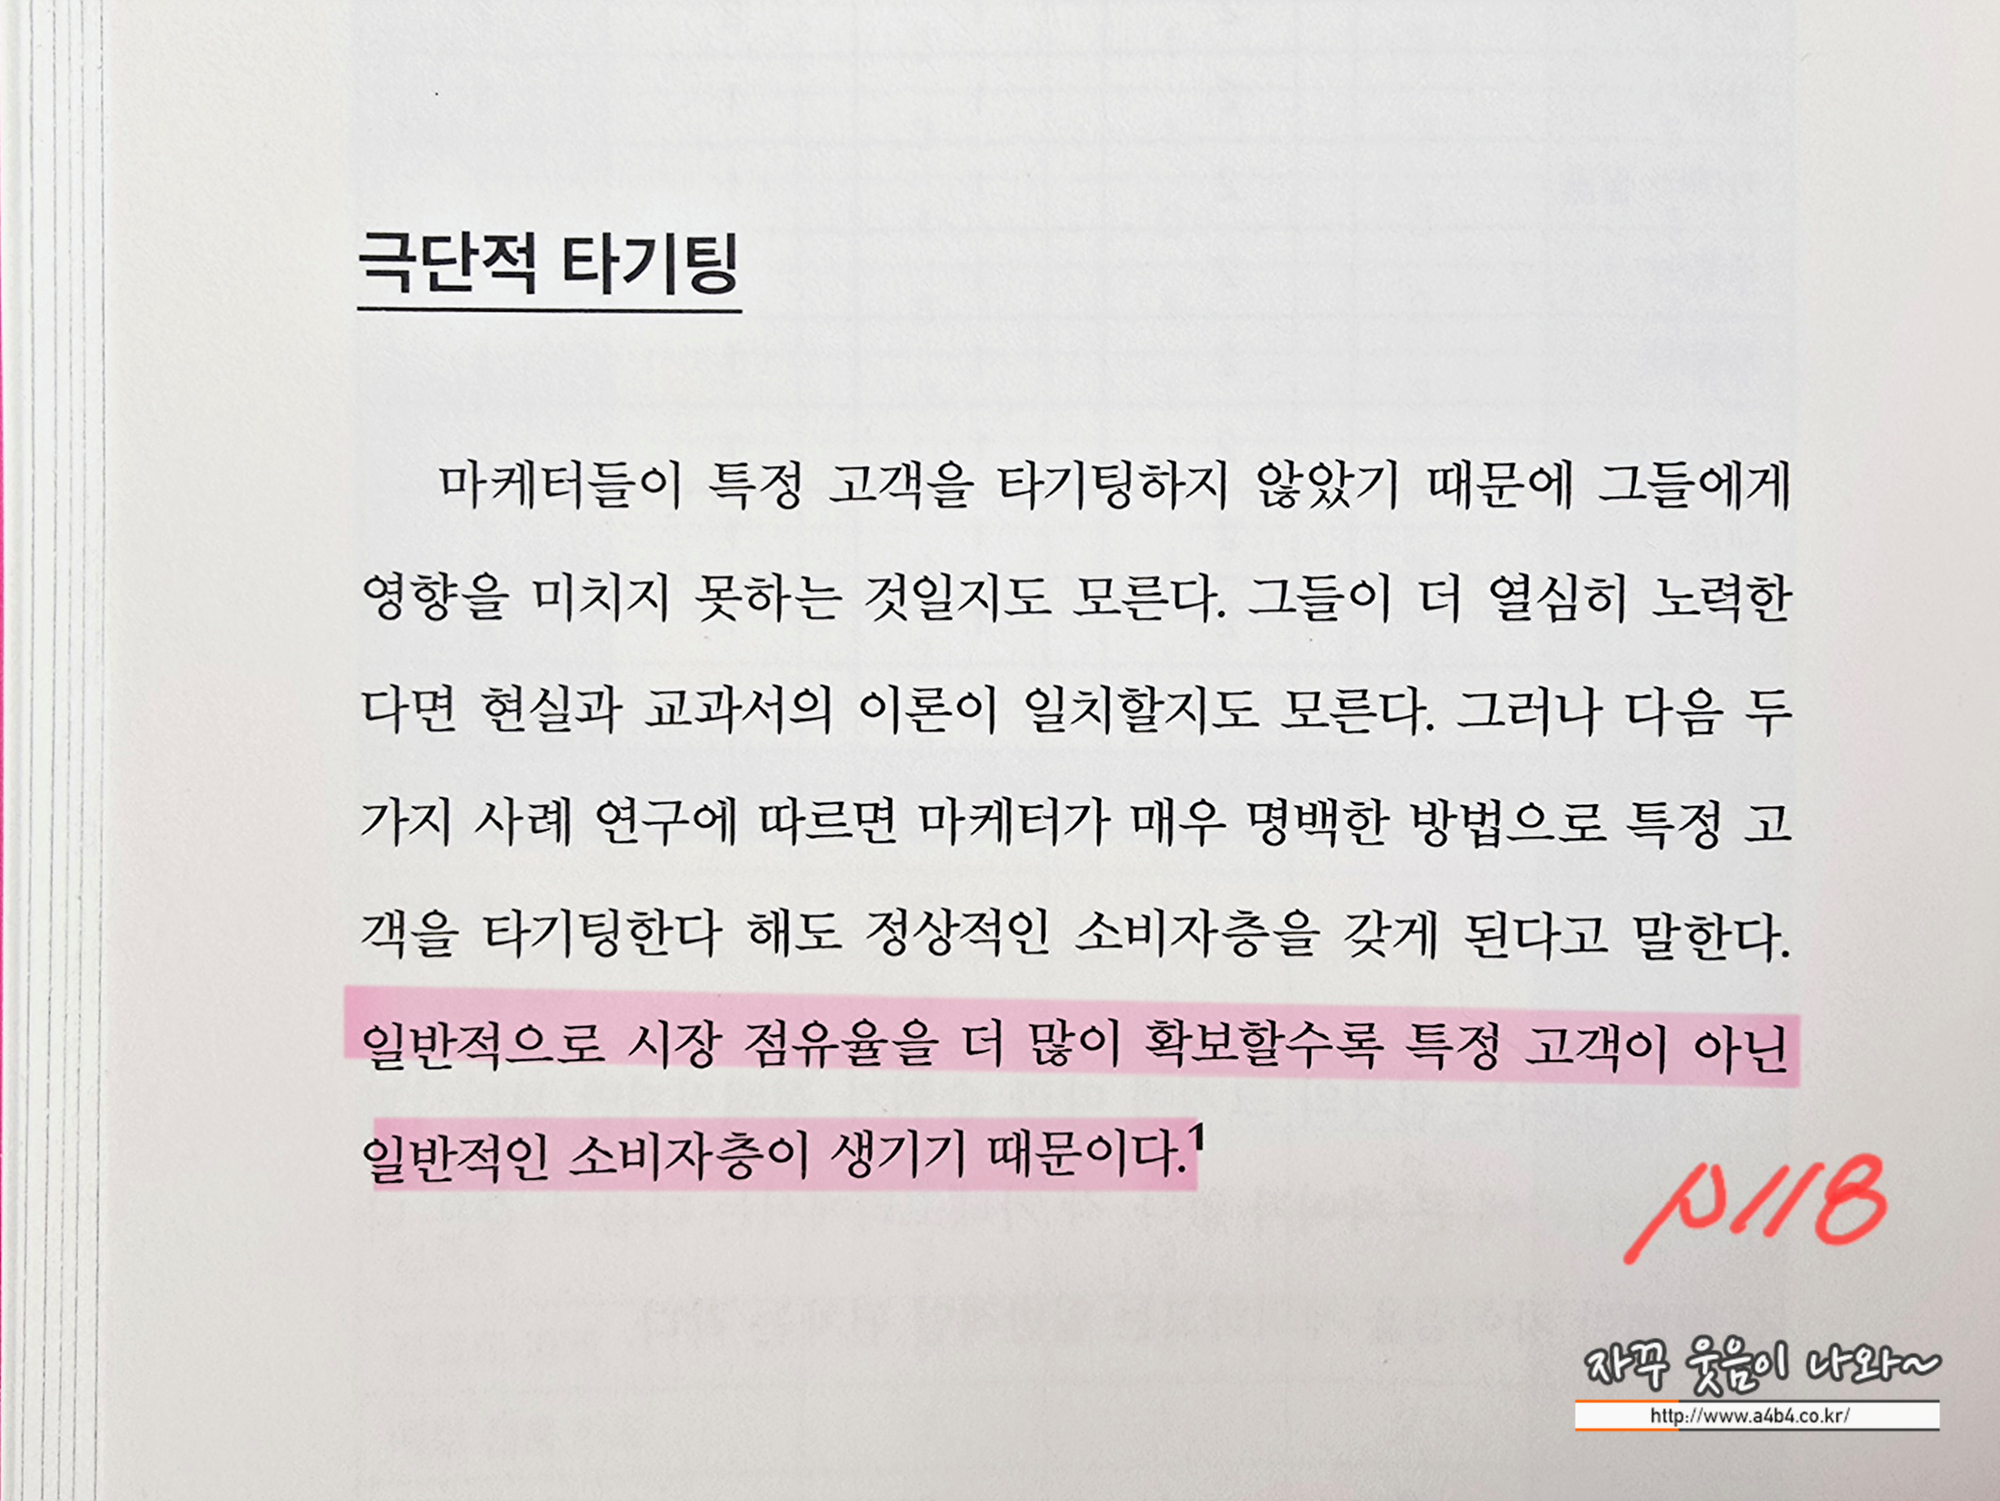 극단적 타기팅
마케터들이 특정 고객을 타기팅하지 않았기 때문에 그들에게
영향을 미치지 못하는 것일지도 모른다. 그들이 더 열심히 노력한
다면 현실과 교과서의 이론이 일치할지도 모른다. 그러나 다음 두
가지 사례 연구에 따르면 마케터가 매우 명백한 방법으로 특정 고
객을 타기팅한다 해도 정상적인 소비자층을 갖게 된다고 말한다.
일반적으로 시장 점유율을 더 많이 확보할수록 특정 고객이 아닌
일반적인 소비자층이 생기기 때문이다.¹
p118
자꾸 웃음이 나와~
http://www.a4b4.co.kr/